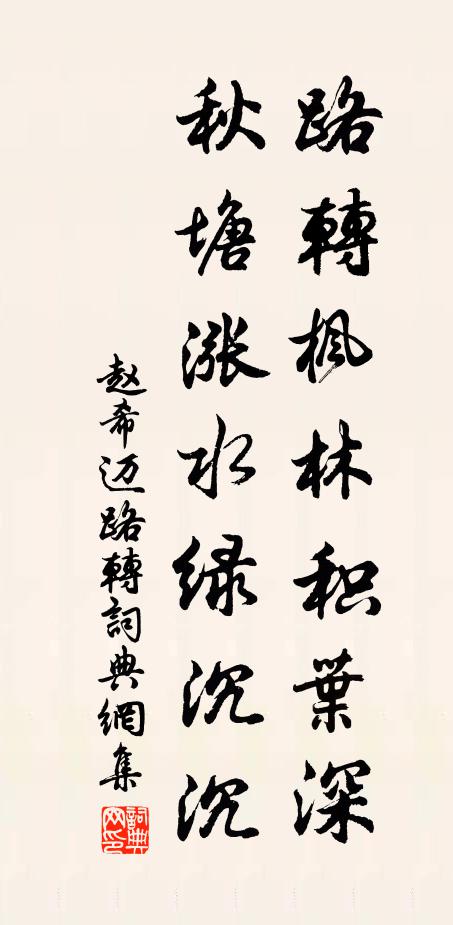 路轉楓林积葉深
秋塘漲水绿沉沉
赵希迈路轉詞典網集
詞典网印